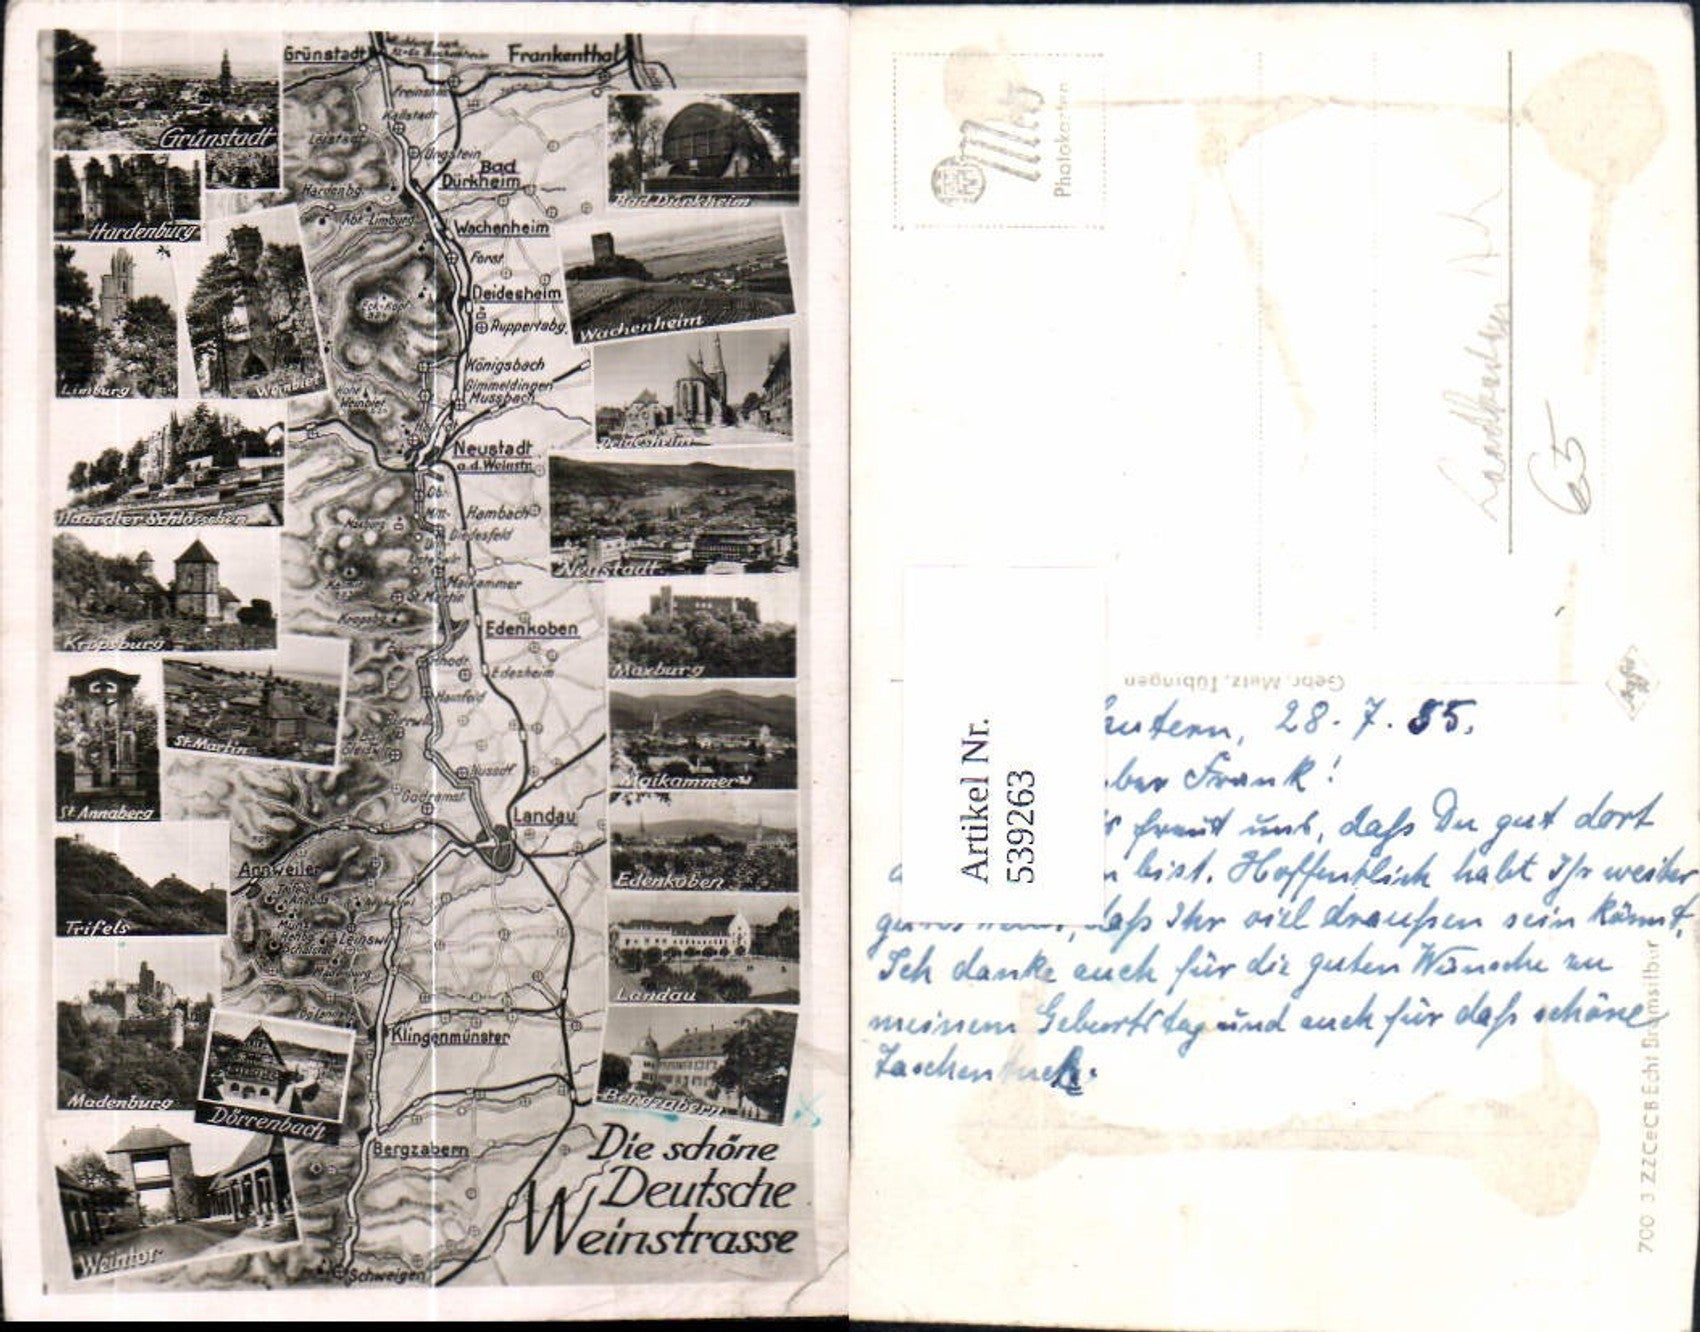 Grünstadt
Frankenthal
Grünstadt
Freinsheim
Kallstadt
Ungstein
Bad
Dürkheim
Hardenbg.
Abt. Limburg
Bad Dürkheim
Hardenburg
Wachenheim
Forst
Deidesheim
Ruppertsbg.
Wachenheim
Limburg
Weinbiet
Königsbach
Gimmeldingen
Mussbach
Hohe
Weinbiet
Deidesheim
Neustadt
a.d. Weinstr.
Haardter Schlösschen
Hambach
Diedesfeld
Neustadt
Maikammer
St. Martin
Kropsburg
Kropsbg.
Edenkoben
Edesheim
Maxburg
Rhodt
Hainfeld
St. Martin
St. Annaberg
Maikammer
Nussdf.
Godramst.
Landau
Edenkoben
Annweiler
Trifels
Trifels
Anebos
Münz
Leinsw.
Madenburg
Landau
Klingenmünster
Madenburg
Dörrenbach
Bergzabern
Bergzabern
Weintor
Schweigen
Die schöne
Deutsche
Weinstrasse
Metz
Photokarten
65
Gebr. Metz, Tübingen
Agfa
Artikel Nr.
539263
autern, 28.7.55.
ber Frank!
freut uns, daß Du gut dort
bist. Hoffentlich habt Ihr weiter
daß Ihr viel draußen sein könnt.
Ich danke auch für die guten Wünsche zu
meinem Geburtstag und auch für daß schöne
Taschentuch.
700 3 ZZCeCB Echt Bromsilber